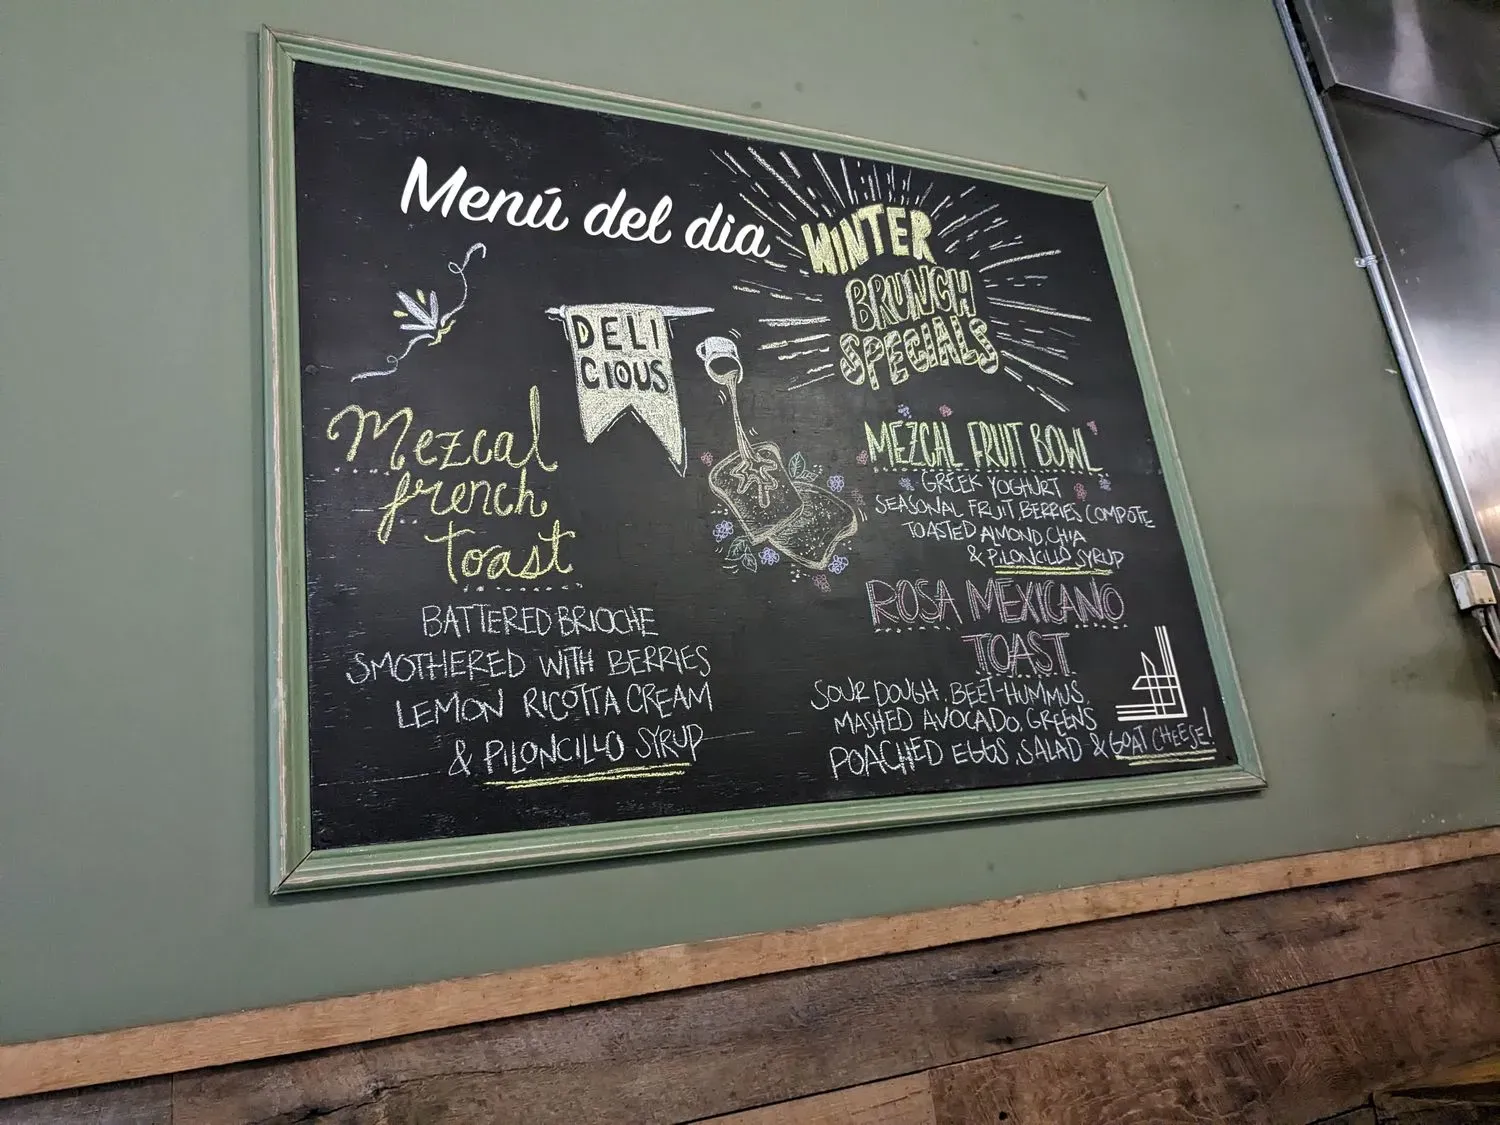 Menú del dia
WINTER
BRUNCH
SPECIALS
DELI
CIOUS
Mezcal
french
toast
BATTERED BRIOCHE
SMOTHERED WITH BERRIES
LEMON RICOTTA CREAM
& PILONCILLO SYRUP
MEZCAL FRUIT BOWL
GREEK YOGHURT
SEASONAL FRUIT, BERRIES COMPOTE
TOASTED ALMOND, CHIA
& PILONCILLO SYRUP
ROSA MEXICANO
TOAST
SOUR DOUGH, BEET-HUMMUS,
MASHED AVOCADO, GREENS
POACHED EGGS, SALAD & GOAT CHEESE!